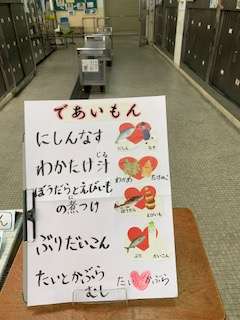 であいもん
にしんなす
にしん なす
わかたけ汁
じる
わかめ たけのこ
ぼうだらとえびいも
の煮つけ
に
ぼうだら えびいも
ぶりだいこん
ぶり だいこん
たいとかぶら
むし
たい かぶら